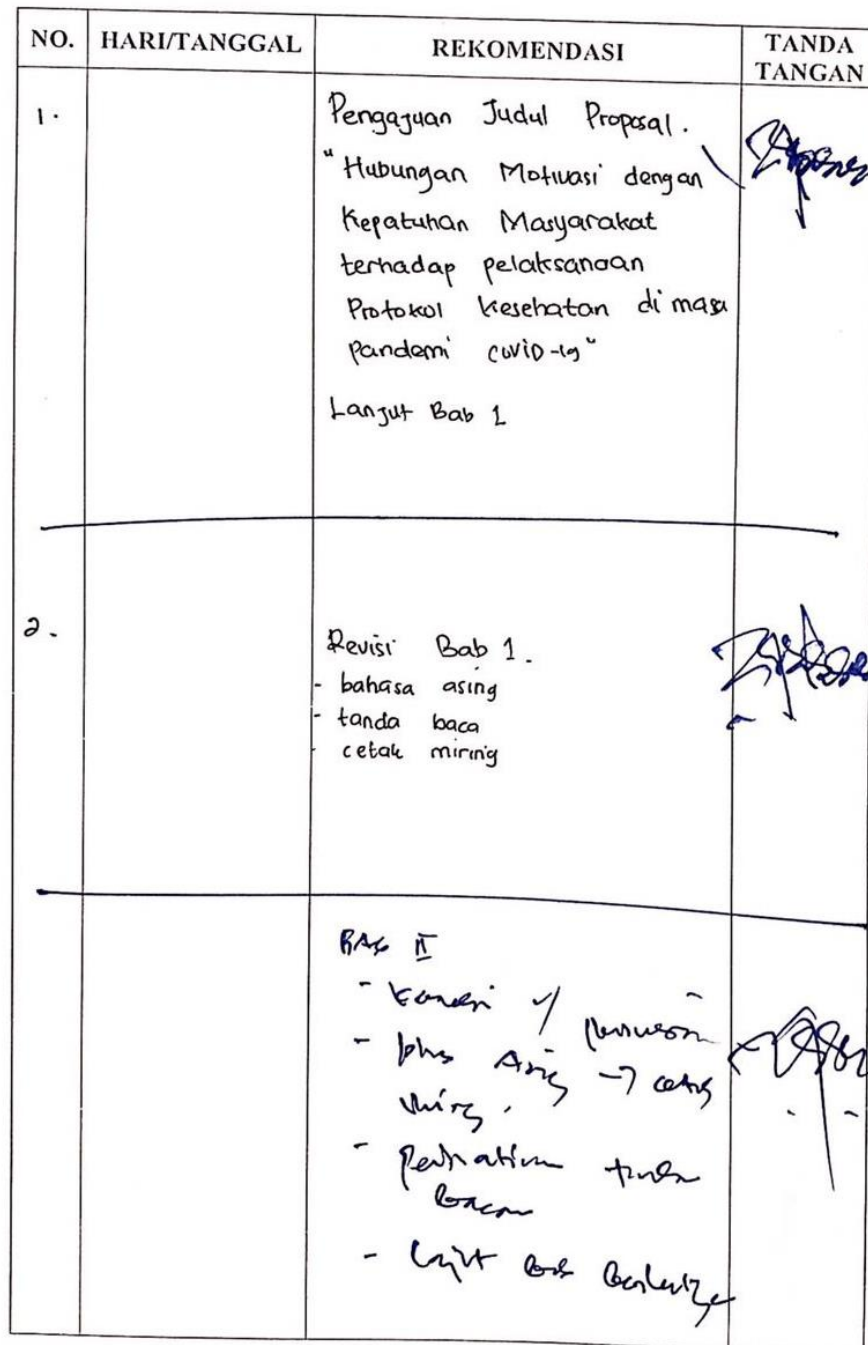 NO. HARI/TANGGAL REKOMENDASI TANDA TANGAN
1. Pengajuan Judul Proposal.
"Hubungan Motivasi dengan
Kepatuhan Masyarakat
terhadap pelaksanaan
Protokol Kesehatan di masa
pandemi COVID-19"
Lanjut Bab 1
2. Revisi Bab 1.
- bahasa asing
- tanda baca
- cetak miring
BAB II
-
- bhs Asing → cetak
miring.
- Perhatikan tanda
baca
- Lanjut bab berikutnya